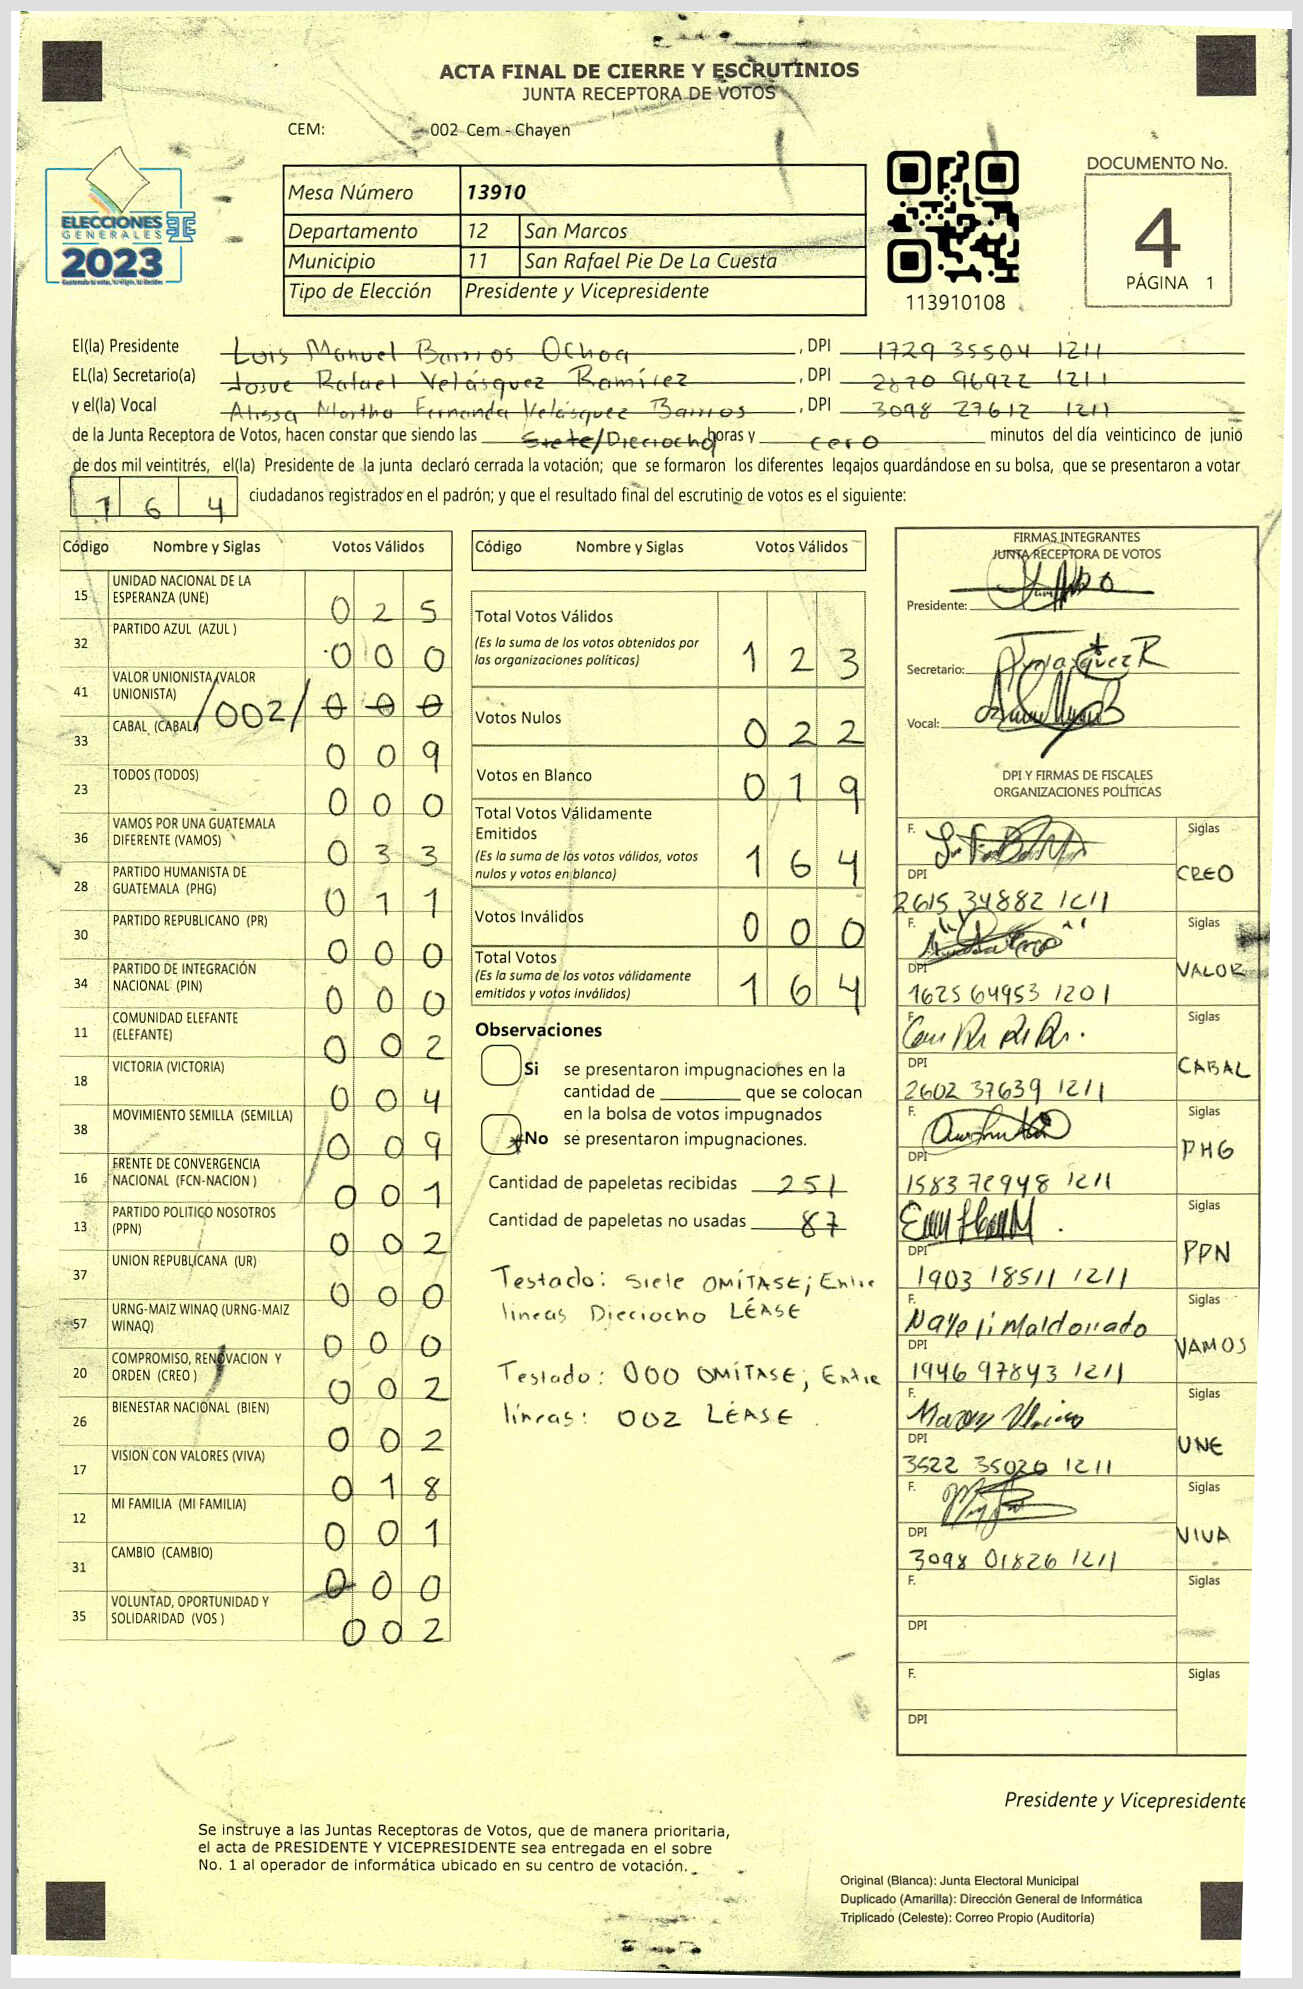 ACTA FINAL DE CIERRE Y ESCRUTINIOS
JUNTA RECEPTORA DE VOTOS
CEM: 002 Cem - Chayen
ELECCIONES
GENERALES
2023
Mesa Número 13910
Departamento 12 San Marcos
Municipio 11 San Rafael Pie De La Cuesta
Tipo de Elección Presidente y Vicepresidente
113910108
DOCUMENTO No.
4
PÁGINA 1
El(la) Presidente Luis Manuel Barrios Ochoa, DPI 1729 35504 1211
EL(la) Secretario(a) Josue Rafael Velásquez Ramírez, DPI 2870 96922 1211
y el(la) Vocal Alissa Martha Fernanda Velásquez Barrios, DPI 3098 27612 1211
de la Junta Receptora de Votos, hacen constar que siendo las Siete/Dieciocho horas y cero minutos del día veinticinco de junio
de dos mil veintitrés, el(la) Presidente de la junta declaró cerrada la votación; que se formaron los diferentes legajos guardándose en su bolsa, que se presentaron a votar
164 ciudadanos registrados en el padrón; y que el resultado final del escrutinio de votos es el siguiente:
Código Nombre y Siglas Votos Válidos
15 UNIDAD NACIONAL DE LA
ESPERANZA (UNE) 025
32 PARTIDO AZUL (AZUL ) 000
41 VALOR UNIONISTA (VALOR
UNIONISTA) /002/ 000
33 CABAL (CABAL) 009
23 TODOS (TODOS) 000
36 VAMOS POR UNA GUATEMALA
DIFERENTE (VAMOS) 033
28 PARTIDO HUMANISTA DE
GUATEMALA (PHG) 011
30 PARTIDO REPUBLICANO (PR) 000
34 PARTIDO DE INTEGRACIÓN
NACIONAL (PIN) 000
11 COMUNIDAD ELEFANTE
(ELEFANTE) 002
18 VICTORIA (VICTORIA) 004
38 MOVIMIENTO SEMILLA (SEMILLA) 009
16 FRENTE DE CONVERGENCIA
NACIONAL (FCN-NACION ) 001
13 PARTIDO POLITICO NOSOTROS
(PPN) 002
37 UNION REPUBLICANA (UR) 000
57 URNG-MAIZ WINAQ (URNG-MAIZ
WINAQ) 000
20 COMPROMISO, RENOVACION Y
ORDEN (CREO ) 002
26 BIENESTAR NACIONAL (BIEN) 002
17 VISION CON VALORES (VIVA) 018
12 MI FAMILIA (MI FAMILIA) 001
31 CAMBIO (CAMBIO) 000
35 VOLUNTAD, OPORTUNIDAD Y
SOLIDARIDAD (VOS ) 002
Código Nombre y Siglas Votos Válidos
Total Votos Válidos
(Es la suma de los votos obtenidos por
las organizaciones políticas) 123
Votos Nulos 022
Votos en Blanco 019
Total Votos Válidamente
Emitidos
(Es la suma de los votos válidos, votos
nulos y votos en blanco) 164
Votos Inválidos 000
Total Votos
(Es la suma de los votos válidamente
emitidos y votos inválidos) 164
Observaciones
Si se presentaron impugnaciones en la
cantidad de ________ que se colocan
en la bolsa de votos impugnados
No se presentaron impugnaciones.
Cantidad de papeletas recibidas 251
Cantidad de papeletas no usadas 87
Testado: Siete OMÍTASE; Entre
líneas Dieciocho LÉASE
Testado: 000 OMÍTASE; Entre
líneas: 002 LÉASE
FIRMAS INTEGRANTES
JUNTA RECEPTORA DE VOTOS
Presidente:
Secretario:
Vocal:
DPI Y FIRMAS DE FISCALES
ORGANIZACIONES POLÍTICAS
F. Siglas
DPI CREO
2615 34882 1211
F. Siglas
DPI VALOR
1625 64953 1201
F. Siglas
DPI CABAL
2602 37639 1211
F. Siglas
DPI PHG
1583 72948 1211
F. Siglas
DPI PPN
1903 18511 1211
F. Siglas
Nayeli Maldonado
DPI VAMOS
1946 97843 1211
F. Siglas
DPI UNE
3522 35020 1211
F. Siglas
DPI VIVA
3098 01826 1211
F. Siglas
DPI
F. Siglas
DPI
Presidente y Vicepresidente
Se instruye a las Juntas Receptoras de Votos, que de manera prioritaria,
el acta de PRESIDENTE Y VICEPRESIDENTE sea entregada en el sobre
No. 1 al operador de informática ubicado en su centro de votación.
Original (Blanca): Junta Electoral Municipal
Duplicado (Amarilla): Dirección General de Informática
Triplicado (Celeste): Correo Propio (Auditoría)